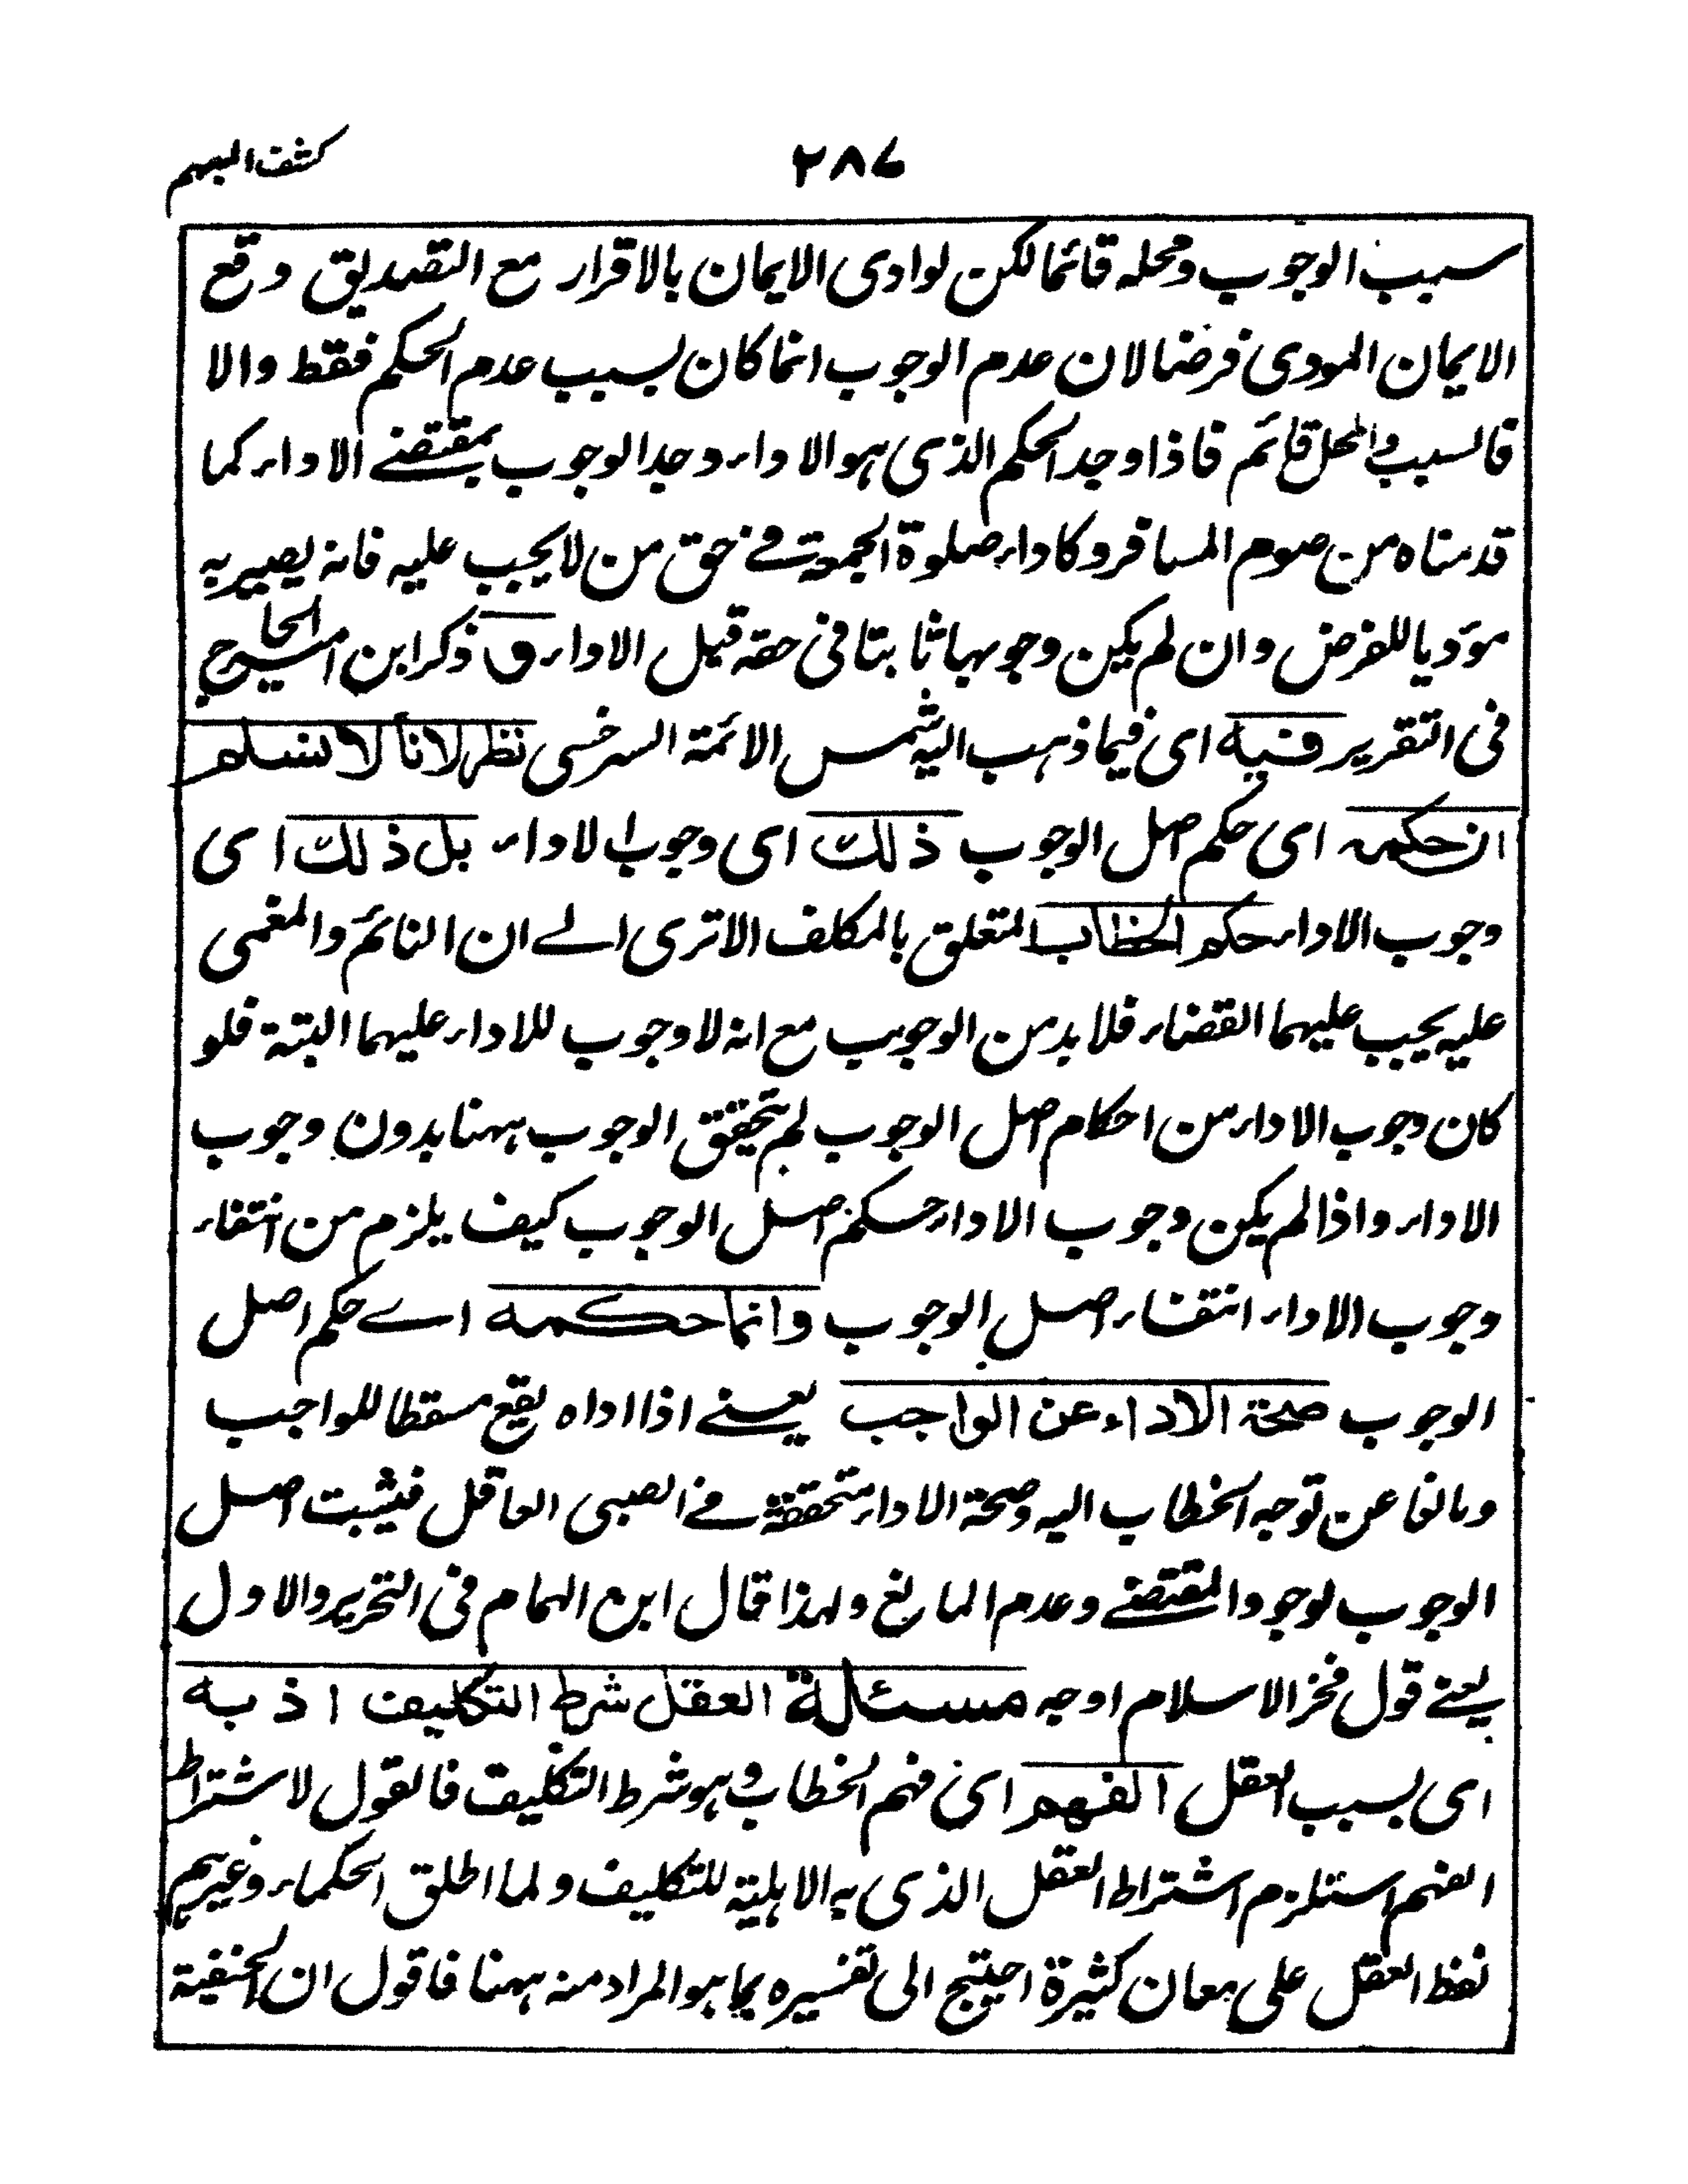 كشف المبهم
٢٨٦
سبب الوجوب ومحله قائما لكن لو ادى الايمان بالاقرار مع التصديق وقع
الايمان المودى فرضا لان عدم الوجوب انما كان بسبب عدم الحكم فقط والا
فالسبب والمحل قائم فاذا وجد الحكم الذى هو الاداء وجد الوجوب بمقتضے الاداء كما
قدمناه من صوم المسافر وكاداء صلوة الجمعة فے حق من لا يجب عليه فانه يصير به
مؤديا للفرض وان لم يكن وجوبها ثابتا فى حقه قبل الاداء و ذكر ابن امير الحاج
فى التقرير فيه اى فيما ذهب اليه شمس الائمة السرخسى نظر لانا لا نسلم
ان حكمه اى حكم اصل الوجوب ذلك اى وجوب الاداء بل ذلك اى
وجوب الاداء حكم الخطاب المتعلق بالمكلف الا ترى الے ان النائم والمغمى
عليه يجب عليهما القضاء فلا بد من الوجوب مع انه لا وجوب للاداء عليهما البتة فلو
كان وجوب الاداء من احكام اصل الوجوب لم يتحقق الوجوب ههنا بدون وجوب
الاداء واذا لم يكن وجوب الاداء حكم اصل الوجوب كيف يلزم من انتفاء
وجوب الاداء انتفاء اصل الوجوب وانما حكمه اے حكم اصل
الوجوب صحة الاداء عن الواجب يعنے اذا اداه يقع مسقطا للواجب
ومانعا عن توجه الخطاب اليه وصحة الاداء متحققة فے الصبى العاقل فيثبت اصل
الوجوب لوجود المقتضے وعدم المانع ولهذا قال ابن الهمام فى التحرير والاول
يعنے قول فخر الاسلام اوجه مسئلة العقل شرط التكليف اذ به
اى بسبب العقل الفهم اى فهم الخطاب وهو شرط التكليف فالقول لاشتراط
الفهم استلزم اشتراط العقل الذى به الاهلية للتكليف ولما اطلق الحكماء وغيرهم
لفظ العقل على معان كثيرة احتيج الى تفسيره بما هو المراد منه ههنا فاقول ان الحنفية